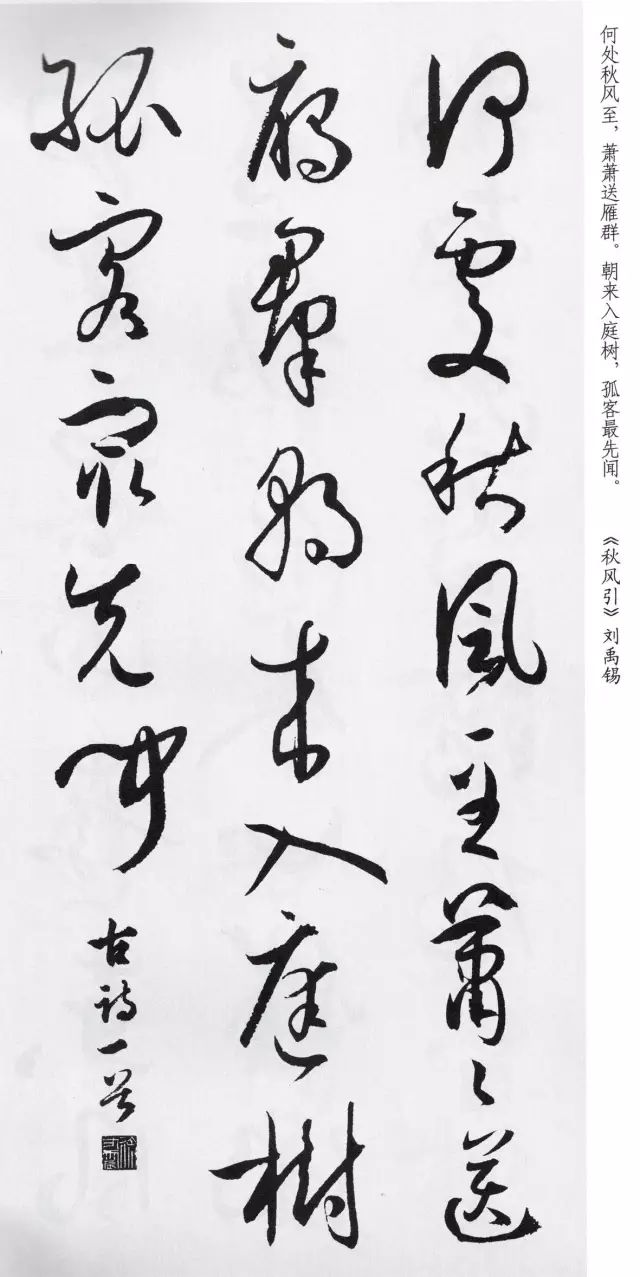 何处秋风至，萧萧送雁群。朝来入庭树，孤客最先闻。 《秋风引》刘禹锡
何處秋風至蕭々送
雁羣朝来入庭樹
孤客最先聞
古詩一首